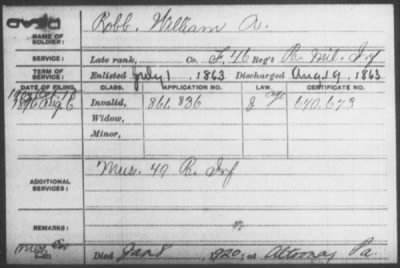 NAME OF SOLDIER: Robb, William A.
SERVICE: Late rank, Co. F, 46 Reg't Pa. Mil. Inf
TERM OF SERVICE: Enlisted July 1, 1863 Discharged Aug 19, 1863
DATE OF FILING. CLASS. APPLICATION NO. LAW. CERTIFICATE NO.
Invalid, 861,836 640,673
Widow,
Minor,
ADDITIONAL SERVICES: Mus. 49 Pa. Inf
REMARKS:
Died Jan 8, 1920, at Pa.